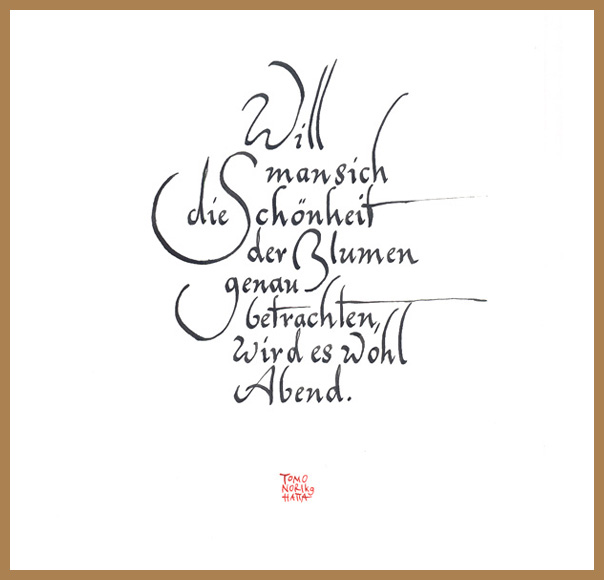 Will
man sich
die Schönheit
der Blumen
genau
betrachten,
Wird es wohl
Abend.
TOMO
NORIKO
HATTA